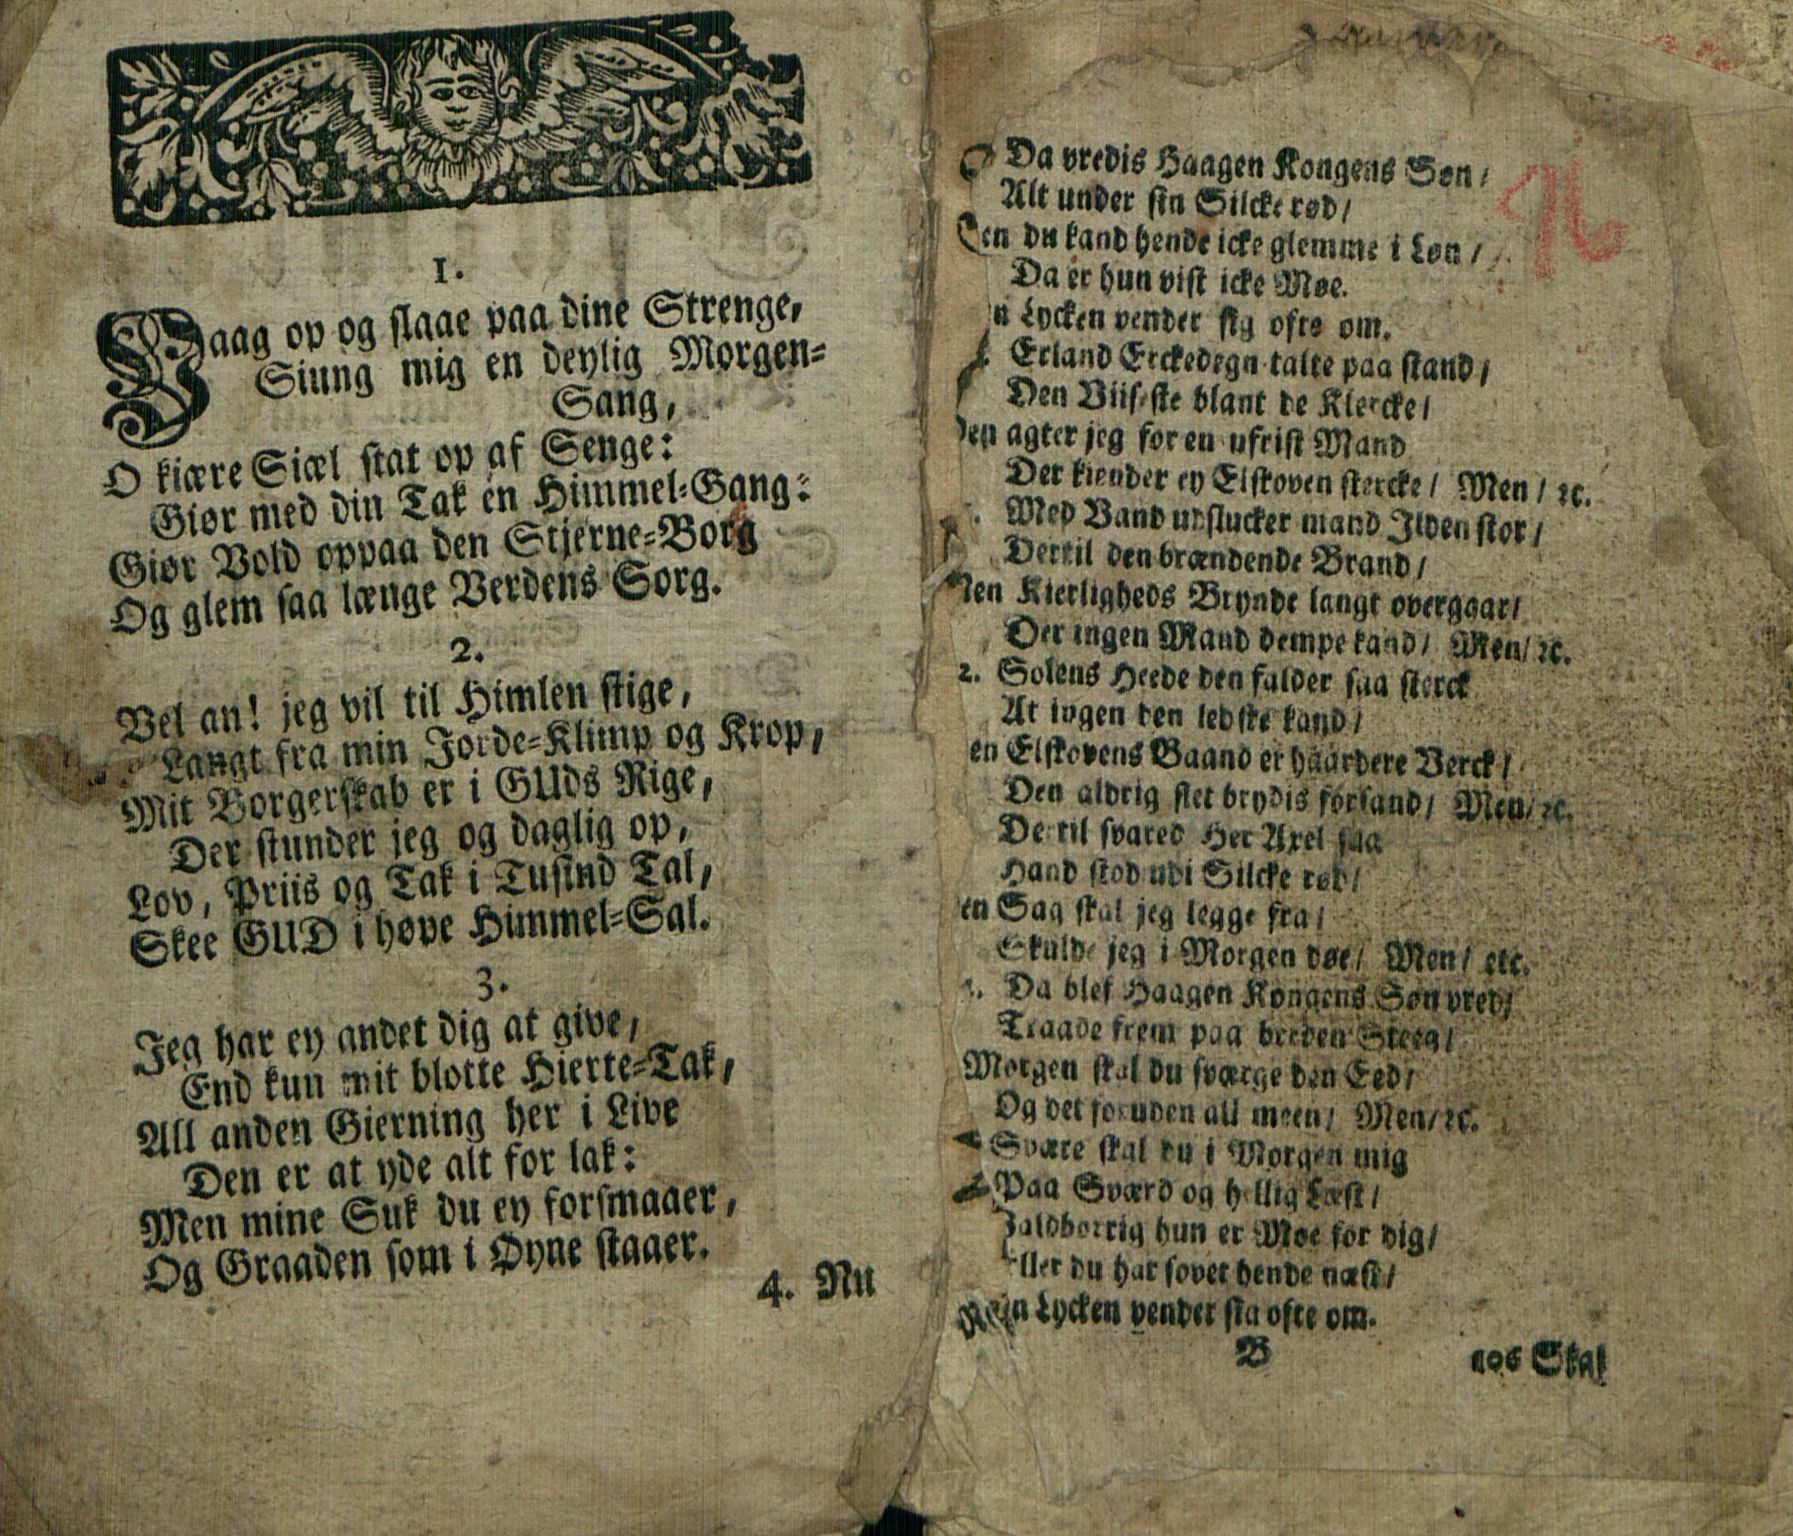 1.
Vaag op og slaae paa dine Strenge,
Siung mig en deylig Morgen-
Sang,
O kiære Siæl stat op af Senge:
Giør med din Tak en Himmel-Gang:
Giør Vold oppaa den Stjerne-Borg
Og glem saa længe Verdens Sorg.
2.
Vel an! jeg vil til Himlen stige,
Langt fra min Jorde-Klimp og Krop,
Mit Borgerskab er i GUds Rige,
Der stunder jeg og daglig op,
Lov, Priis og Tak i Tusind Tal,
Skee GUD i høye Himmel-Sal.
3.
Jeg har ey andet dig at give,
End kun mit blotte Hierte-Tak,
All anden Gierning her i Live
Den er at yde alt for lak:
Men mine Suk du ey forsmaaer,
Og Graaden som i Øyne staaer.
4. Nu
Da vredis Haagen Kongens Søn/
Alt under sin Silcke rød/
en du kand hende icke glemme i Løn/
Da er hun vist icke Møe.
n Lycken vender sig ofte om.
Erland Erckedegn talte paa stand/
Den Viiseste blant de Klercke/
en agter jeg for en ufrist Mand
Der kiender ey Elskoven stercke/ Men/ ꝛc.
Med Vand udslucker mand Ilden stor/
Dertil den brændende Brand/
en Kierligheds Brynde langt overgaar/
Der ingen Mand dempe kand/ Men/ ꝛc.
2. Solens Heede den falder saa sterck
At ingen den ledste kand/
en Elskovens Baand er haardere Verck/
Den aldrig slet brydis forsand/ Men/ ꝛc.
Dertil svared Her Axel saa
Hand stod udi Silcke rød/
en Sag skal jeg legge fra/
Skulde jeg i Morgen døe/ Men/ etc.
Da blef Haagen Kongens Søn vred/
Traade frem paa breden Steeg/
Morgen skal du sværge den Eed/
Og det foruden all meen/ Men/ ꝛc.
Svære skal du i Morgen mig
Paa Sværd og hellig Læst/
Jaldborrig hun er Møe for dig/
ller du har sovet hende næst/
n Lycken vender sig ofte om.
B
Skal